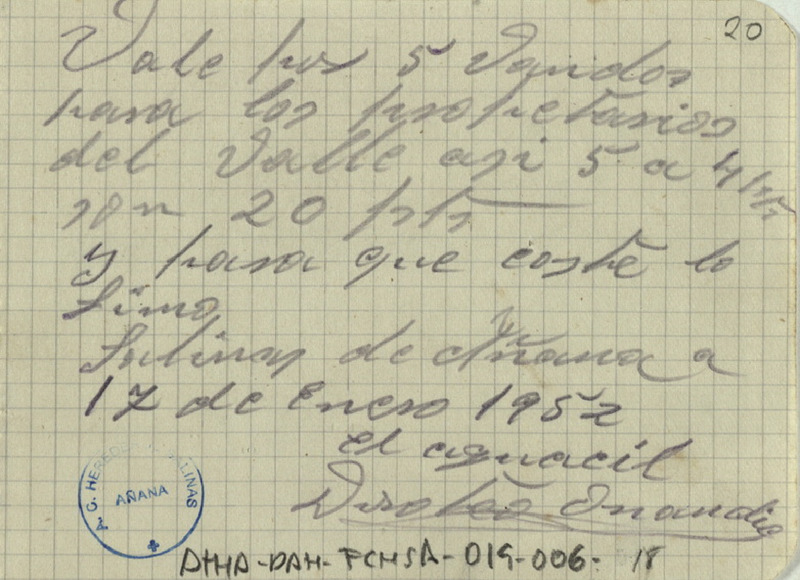 20
Vale por 5 Vandos
para los propetarios
del Valle asi 5 a 4 pts
son 20 pts
y para que coste lo
firmo
Salinas de Añana a
17 de Enero 1952
el aguacil
A. C. HEREDE LINAS
AÑANA
ATHA-DAH-FCHSA-019-006-18